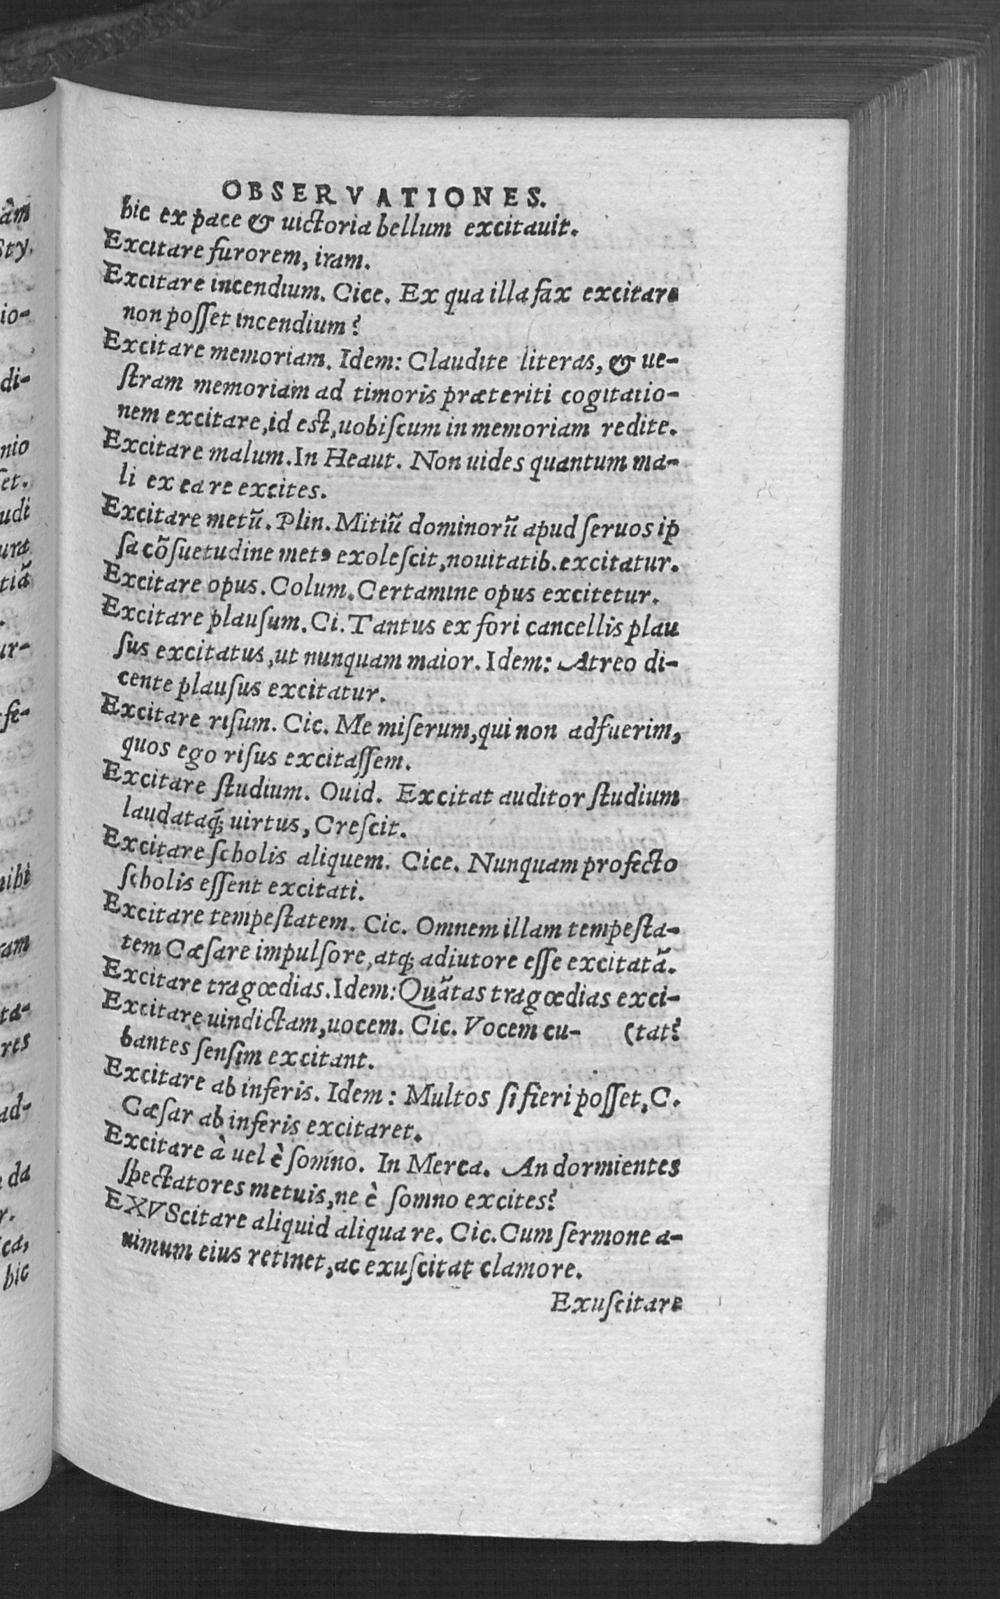 OBSERVATIONES.
hic ex pace & uictoria bellum excitauit.
Excitare furorem, iram.
Excitare incendium. Cice. Ex qua illa fax excitare
non posset incendium?
Excitare memoriam. Idem: Claudite literas, & ue-
stram memoriam ad timoris præteriti cogitatio-
nem excitare, id est, uobiscum in memoriam redite.
Excitare malum. In Heaut. Non uides quantum ma-
li ex ea re excites.
Excitare metũ. Plin. Mitiũ dominorũ apud seruos ip
sa cõsuetudine metꝰ exolescit, nouitatib. excitatur.
Excitare opus. Colum. Certamine opus excitetur.
Excitare plausum. Ci. Tantus ex fori cancellis plau
sus excitatus, ut nunquam maior. Idem: Atreo di-
cente plausus excitatur.
Excitare risum. Cic. Me miserum, qui non adfuerim,
quos ego risus excitassem.
Excitare studium. Ouid. Excitat auditor studium
laudataq́; uirtus, Crescit.
Excitare scholis aliquem. Cice. Nunquam profecto
scholis essent excitati.
Excitare tempestatem. Cic. Omnem illam tempesta-
tem Cæsare impulsore, atq; adiutore esse excitatã.
Excitare tragœdias. Idem: Quãtas tragœdias exci-
Excitare uindictam, uocem. Cic. Vocem cu- (tat?
bantes sensim excitant.
Excitare ab inferis. Idem: Multos si fieri posset, C.
Cæsar ab inferis excitaret.
Excitare à uel è somno. In Merca. An dormientes
spectatores metuis, ne è somno excites?
EXVScitare aliquid aliqua re. Cic. Cum sermone a-
nimum eius retinet, ac exuscitat clamore.
Exuscitare